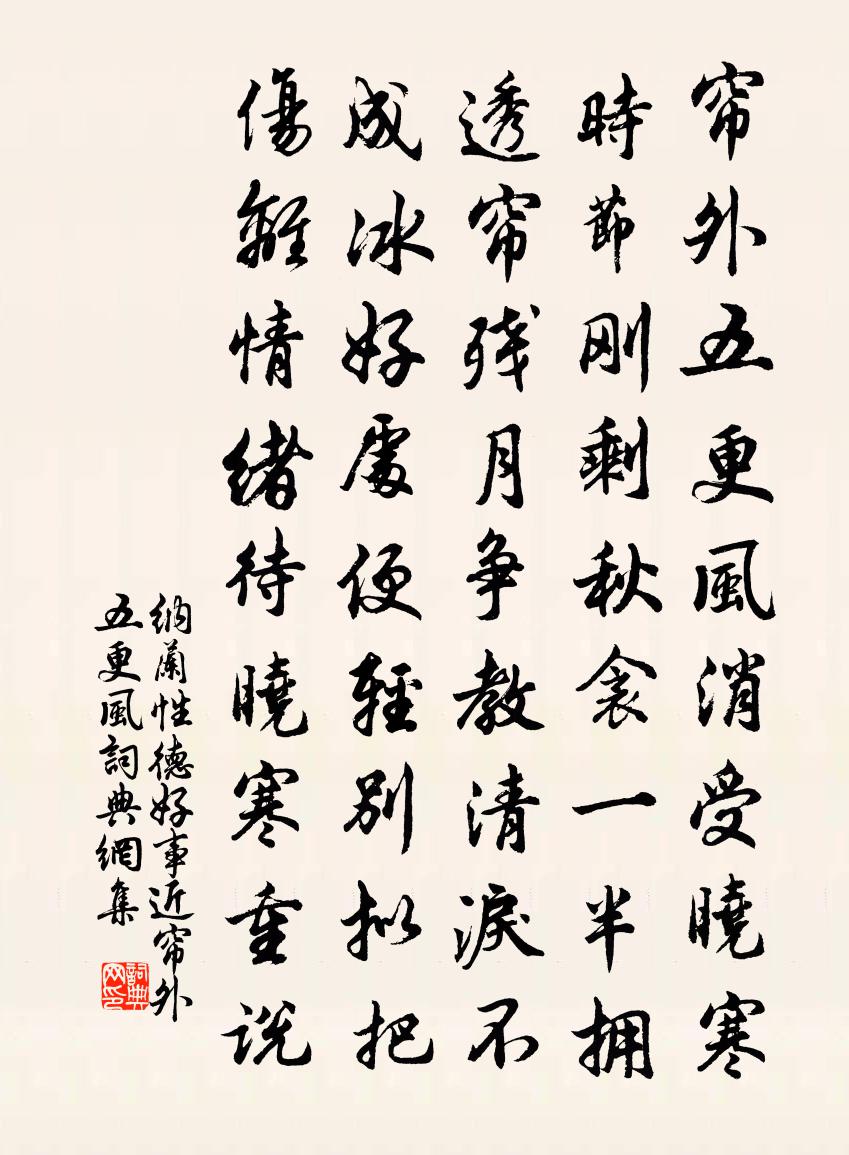 帘外五更風消受曉寒
時節刚剩秋衾一半拥
透帘残月争教清淚不
成冰好處便輕别拟把
傷離情緒待曉寒重说
纳蘭性德好事近帘外
五更風詞典網集
詞典网印